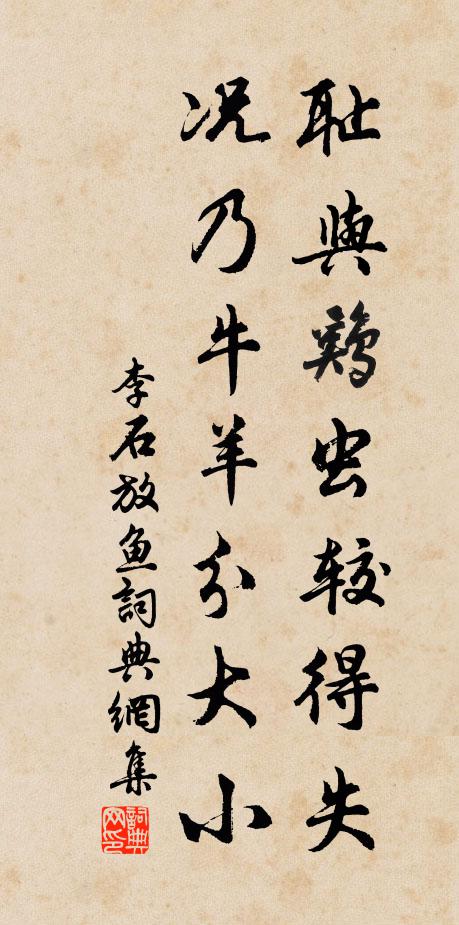 耻與鷄虫较得失
况乃牛羊分大小
李石放鱼詞典網集
詞典网印